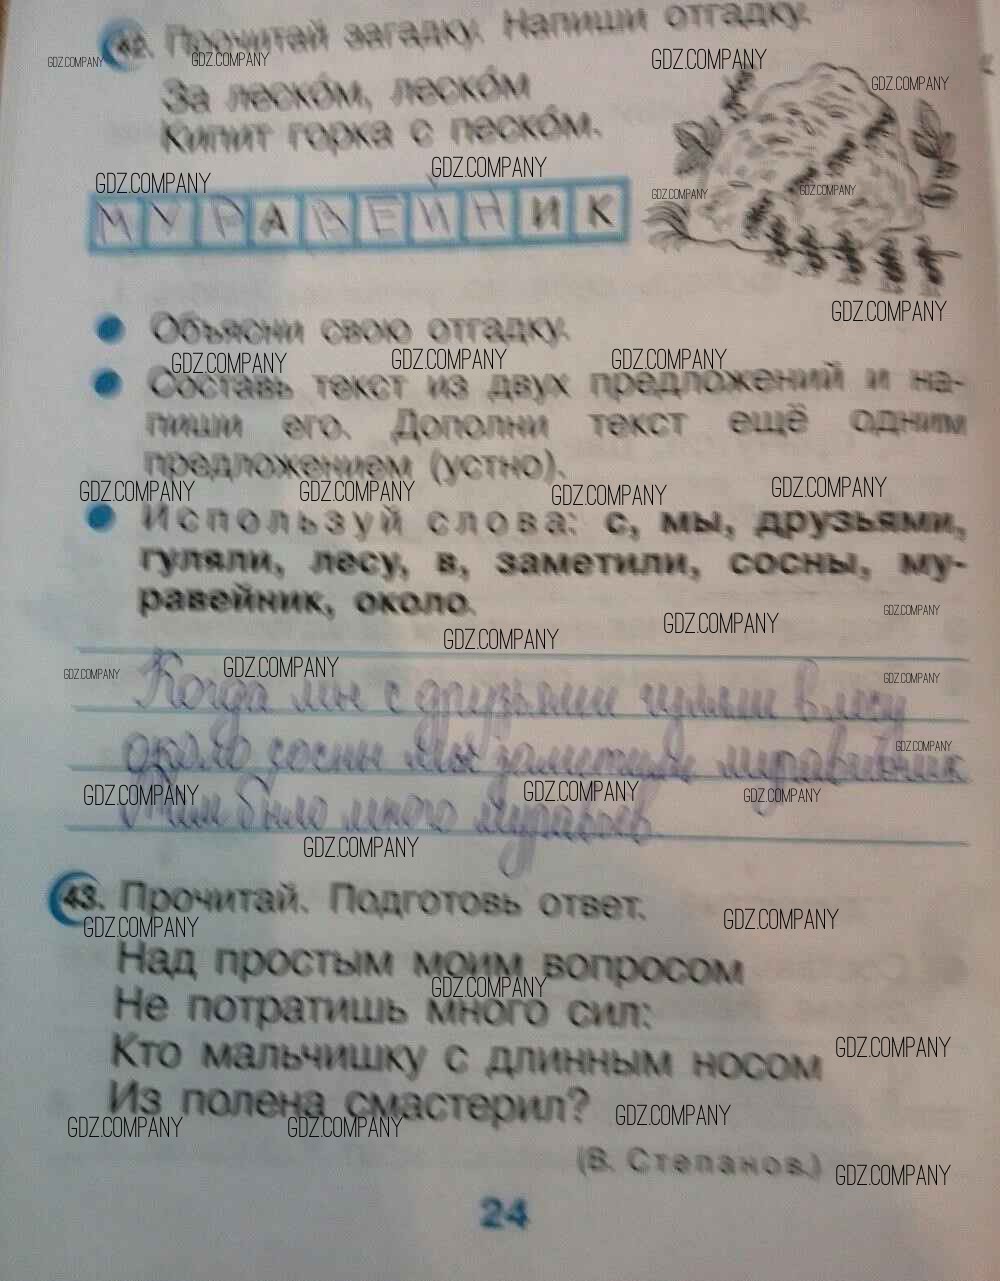 42. Прочитай загадку. Напиши отгадку.
GDZ.COMPANY GDZ.COMPANY GDZ.COMPANY
За леско́м, леско́м
GDZ.COMPANY
Кипит горка с песко́м.
GDZ.COMPANY GDZ.COMPANY
GDZ.COMPANY GDZ.COMPANY
МУРАВЕЙНИК
GDZ.COMPANY
Объясни свою отгадку.
GDZ.COMPANY GDZ.COMPANY GDZ.COMPANY
Составь текст из двух предложений и на-
пиши его. Дополни текст ещё одним
предложением (устно).
GDZ.COMPANY GDZ.COMPANY GDZ.COMPANY GDZ.COMPANY
Используй слова: с, мы, друзьями,
гуляли, лесу, в, заметили, сосны, му-
равейник, около.
GDZ.COMPANY
GDZ.COMPANY GDZ.COMPANY
GDZ.COMPANY GDZ.COMPANY GDZ.COMPANY
Когда мы с друзьями гуляли в лесу
около сосны мы заметили муравейник
GDZ.COMPANY
GDZ.COMPANY GDZ.COMPANY GDZ.COMPANY
Там было много муравьев.
GDZ.COMPANY
43. Прочитай. Подготовь ответ.
GDZ.COMPANY GDZ.COMPANY
Над простым моим вопросом
GDZ.COMPANY
Не потратишь много сил:
Кто мальчишку с длинным носом
GDZ.COMPANY
Из полена смастерил?
GDZ.COMPANY GDZ.COMPANY GDZ.COMPANY
(В. Степанов.)
GDZ.COMPANY
24